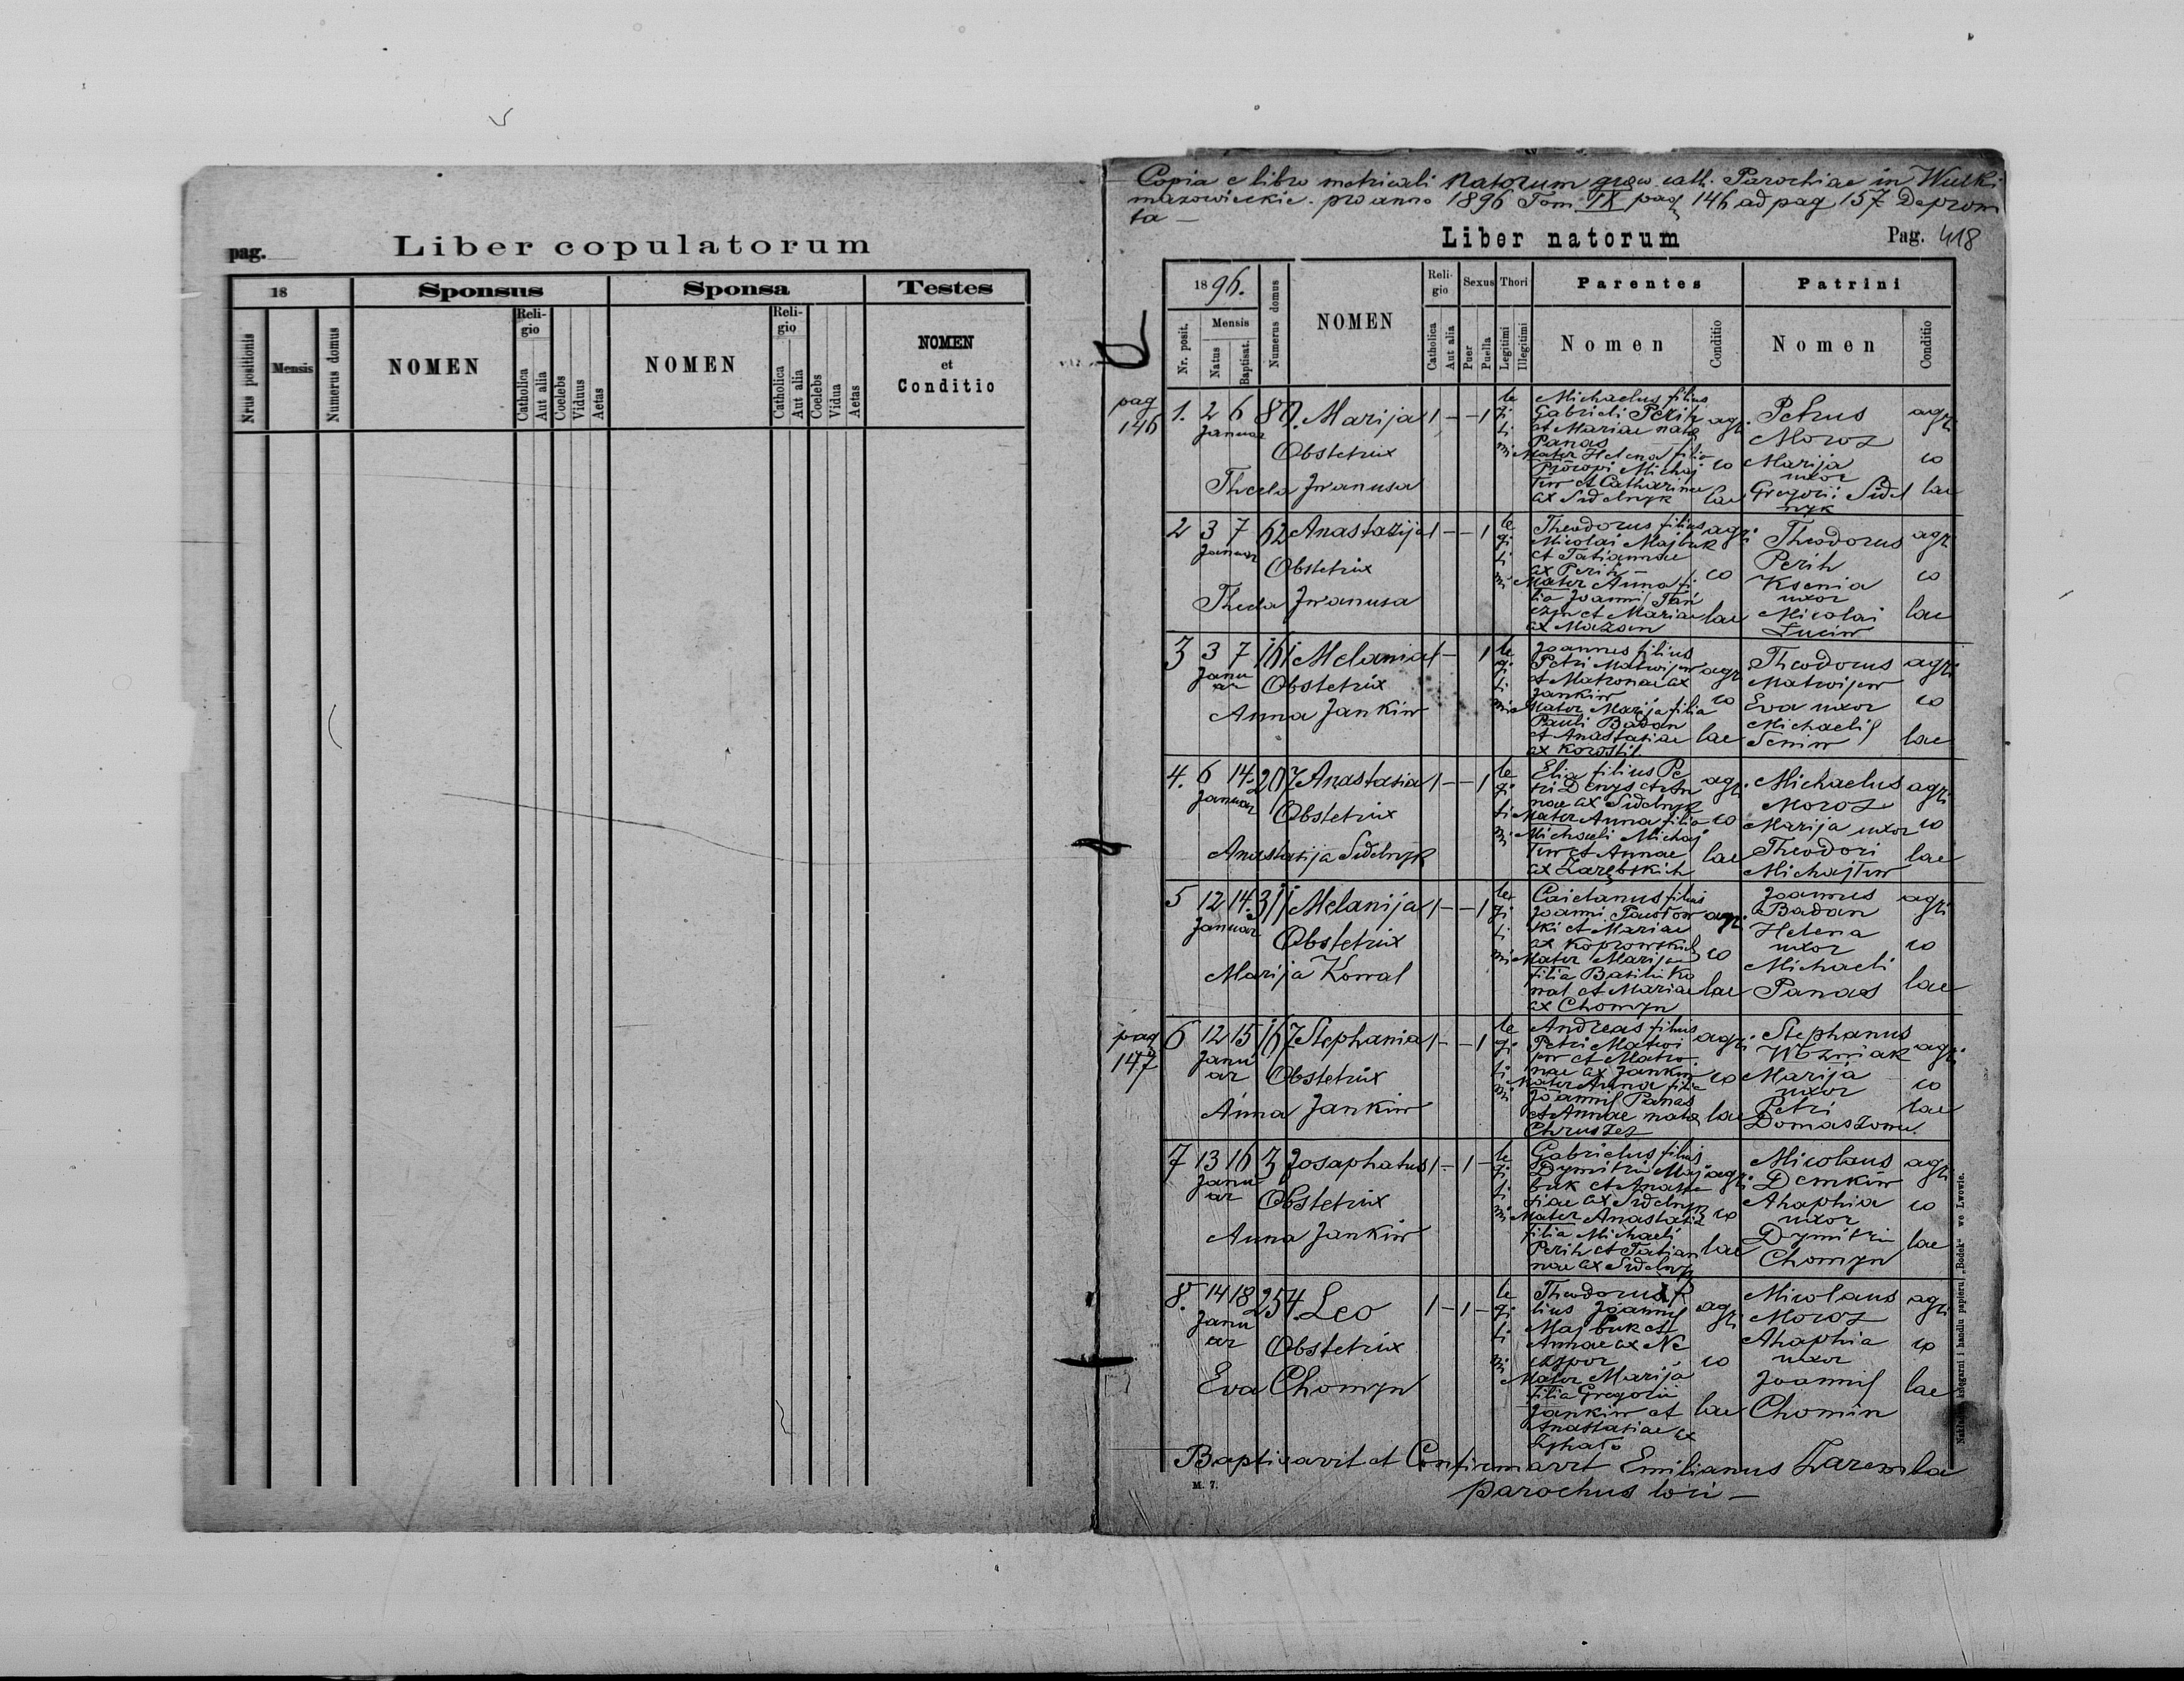 pag.
Liber copulatorum
18
Sponsus
Sponsa
Testes
Nrus positionis
Mensis
Numerus domus
NOMEN
Reli-
gio
Catholica
Aut alia
Coelebs
Viduus
Aetas
NOMEN
Reli-
gio
Catholica
Aut alia
Coelebs
Vidua
Aetas
NOMEN
et
Conditio
Copia e libro metricali Natorum graeco cath. Parochiae in Wulki
mazowieckie. pro anno 1896 Tom. IX pag 146 ad pag 157 Deprom
ta —
Liber natorum
Pag. 418
1896.
Numerus domus
NOMEN
Reli-
gio
Sexus
Thori
Parentes
Patrini
Nr. posit.
Mensis
Natus
Baptisat.
Catholica
Aut alia
Puer
Puella
Legitimi
Illegitimi
Nomen
Conditio
Nomen
Conditio
pag
146
1. 2 6 80. Marija 1 — — 1
Januar
Obstetrix
Thecla Iwanusa
le
gi
ti
mi
Michaelus filius
Gabrieli Perih
et Mariae nata
Panas
Mater Helena filia
Procopi Michaj
łiw et Catharinae
ax Sidelnyk
agri
co
lae
Petrus
Moroz
Marija
uxor
Gregorii Sidel
nyk
agri
co
lae
2 3 7 62 Anastazija 1 — — 1
Januar
Obstetrix
Thecla Iwanusa
le
gi
ti
mi
Theodorus filius
Nicolai Majbuk
et Tatiannae
ax Perih
Mater Anna fi
lia Joanni Tań
czyn et Mariae
ax Mazan
agri
co
lae
Theodorus
Perih
Ksenia
uxor
Nicolai
Luciw
agri
co
lae
3 3 7 161 Melania 1 — 1
Janu
ar
Obstetrix
Anna Jankiw
le
gi
ti
mi
Joannes filius
Petri Matwijew
et Matronae ax
Jankiw
Mater Marija filia
Pauli Badan
et Anastasiae
ax Korostil
agri
co
lae
Theodorus
Matwijew
Eva uxor
Michaelis
Seniw
agri
co
lae
4. 6 14. 207 Anastasia 1 — — 1
Januar
Obstetrix
Anastasija Sidelnyk
le
gi
ti
mi
Elia filius Pe
tri Denys et An
nae ax Sidelnyk
Mater Anna filia
Michaeli Michaj
łiw et Annae
ax Zarębskich
agri
co
lae
Michaelus
Moroz
Marija uxor
Theodori
Michajłiw
agri
co
lae
5 12 14. 311 Melanija 1 — — 1
Januar
Obstetrix
Marija Kowal
le
gi
ti
mi
Caietanus filius
Joanni Pawłow
ski et Mariae
ax Koprowskich
Mater Marija
filia Basilii Ko
wal et Mariae
ax Chomyn
agri
co
lae
Joannes
Badan
Helena
uxor
Michaeli
Panas
agri
co
lae
pag
147
6 12 15 167 Stephania 1 — — 1
Janu
ar
Obstetrix
Anna Jankiw
le
gi
ti
mi
Andreas filius
Petri Matwi
jew et Matro
nae ax Jankiw
Mater Anna filia
Joannis Panas
et Annae nata
Chruszcz
agri
co
lae
Stephanus
Wozniak
Marija
uxor
Petri
Domaszowu.
agri
co
lae
7 13 16 3 Josaphatus 1 — 1 —
Janu
ar
Obstetrix
Anna Jankiw
le
gi
ti
mi
Gabrielus filius
Dymitrii Maj
buk et Anasta
siae ax Sidelnyk
Mater Anastasia
filia Michaeli
Perih et Tatian
nae ax Sidelnyk
agri
co
lae
Nicolaus
Demkiw
Ahaphia
uxor
Dymitrii
Chomyn
agri
co
lae
8. 14 18 254. Leo 1 — 1 —
Janu
ar
Obstetrix
Eva Chomyn
le
gi
ti
mi
Theodorus fi
lius Joannis
Majbuk et
Annae ax Ne
czypor
Mater Marija
filia Gregorii
Jankiw et
Anastasiae ax
agri
co
lae
Nicolaus
Moroz
Ahaphia
uxor
Joannis
Chomin
agri
co
lae
Baptisavit et Confirmavit Emilianus Zaremba
parochus loci —
M. 7.
Nakładem księgarni i handlu papieru „Bodek" we Lwowie.